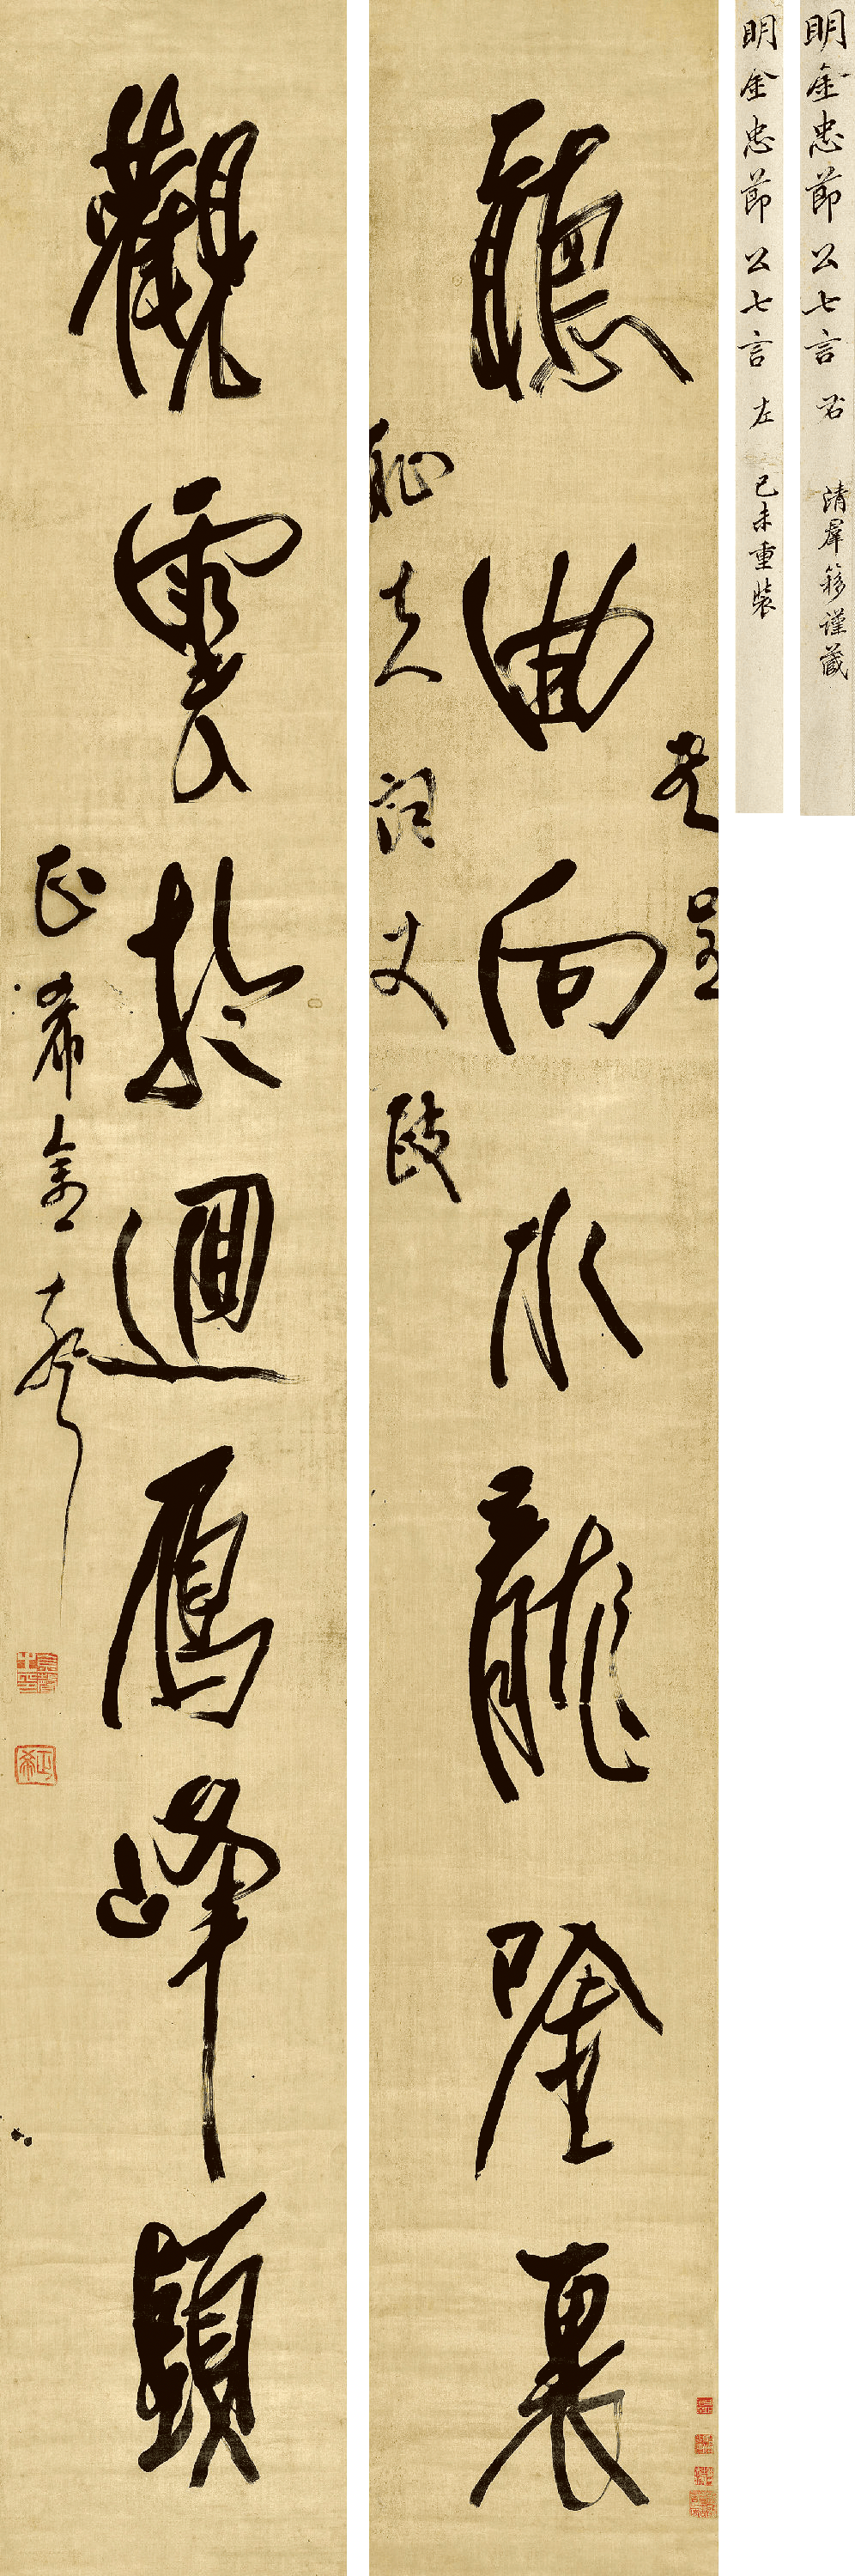 明金忠節公七言 右 清羣簃謹藏
明金忠節公七言 左 己未重裝
書呈
聽曲向水龍陰裏
夫詞丈政
觀雲於迴鴈峰顛
正希金聲
正希